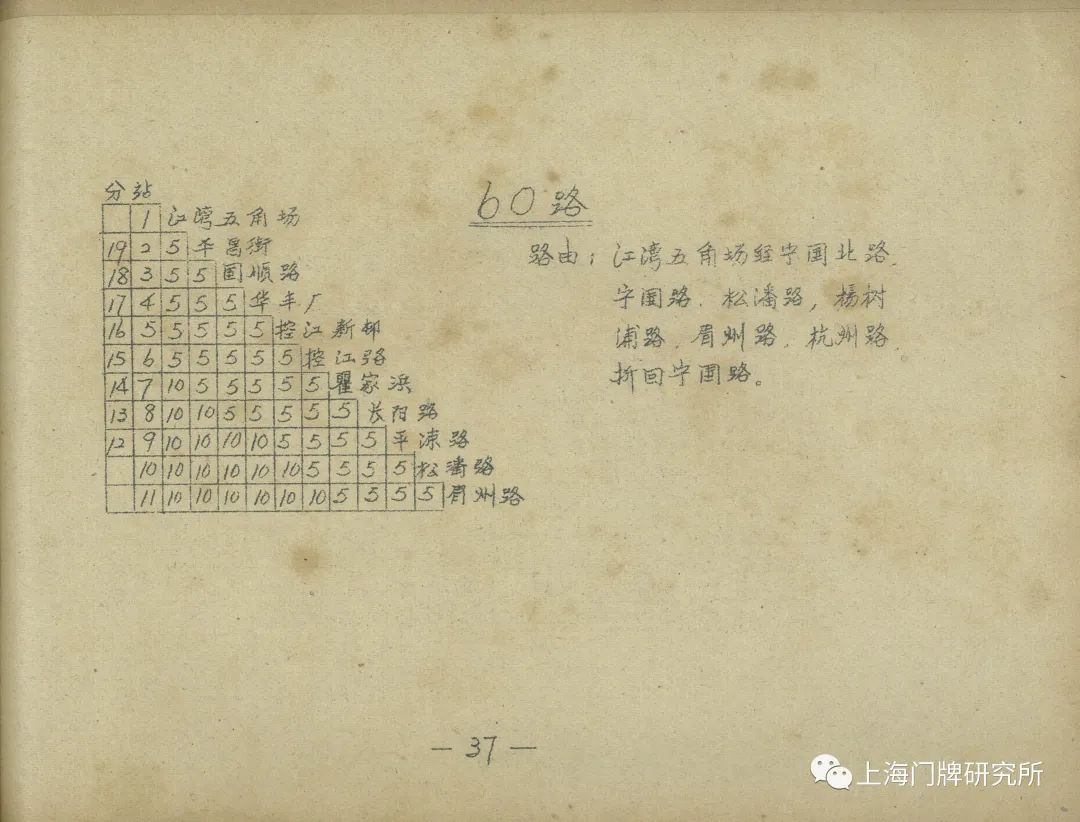 分站
60路
1 江湾五角场
19 2 5 平昌街
18 3 5 5 国顺路
17 4 5 5 5 华丰厂
16 5 5 5 5 5 控江新邨
15 6 5 5 5 5 5 控江路
14 7 10 5 5 5 5 5 瞿家浜
13 8 10 10 5 5 5 5 5 长阳路
12 9 10 10 10 10 5 5 5 5 平凉路
10 10 10 10 10 10 5 5 5 5 松潘路
11 10 10 10 10 10 10 5 5 5 5 眉州路
路由: 江湾五角场经宁国北路、
宁国路、松潘路, 杨树
浦路、眉州路、杭州路、
折回宁国路。
— 37 —
上海门牌研究所